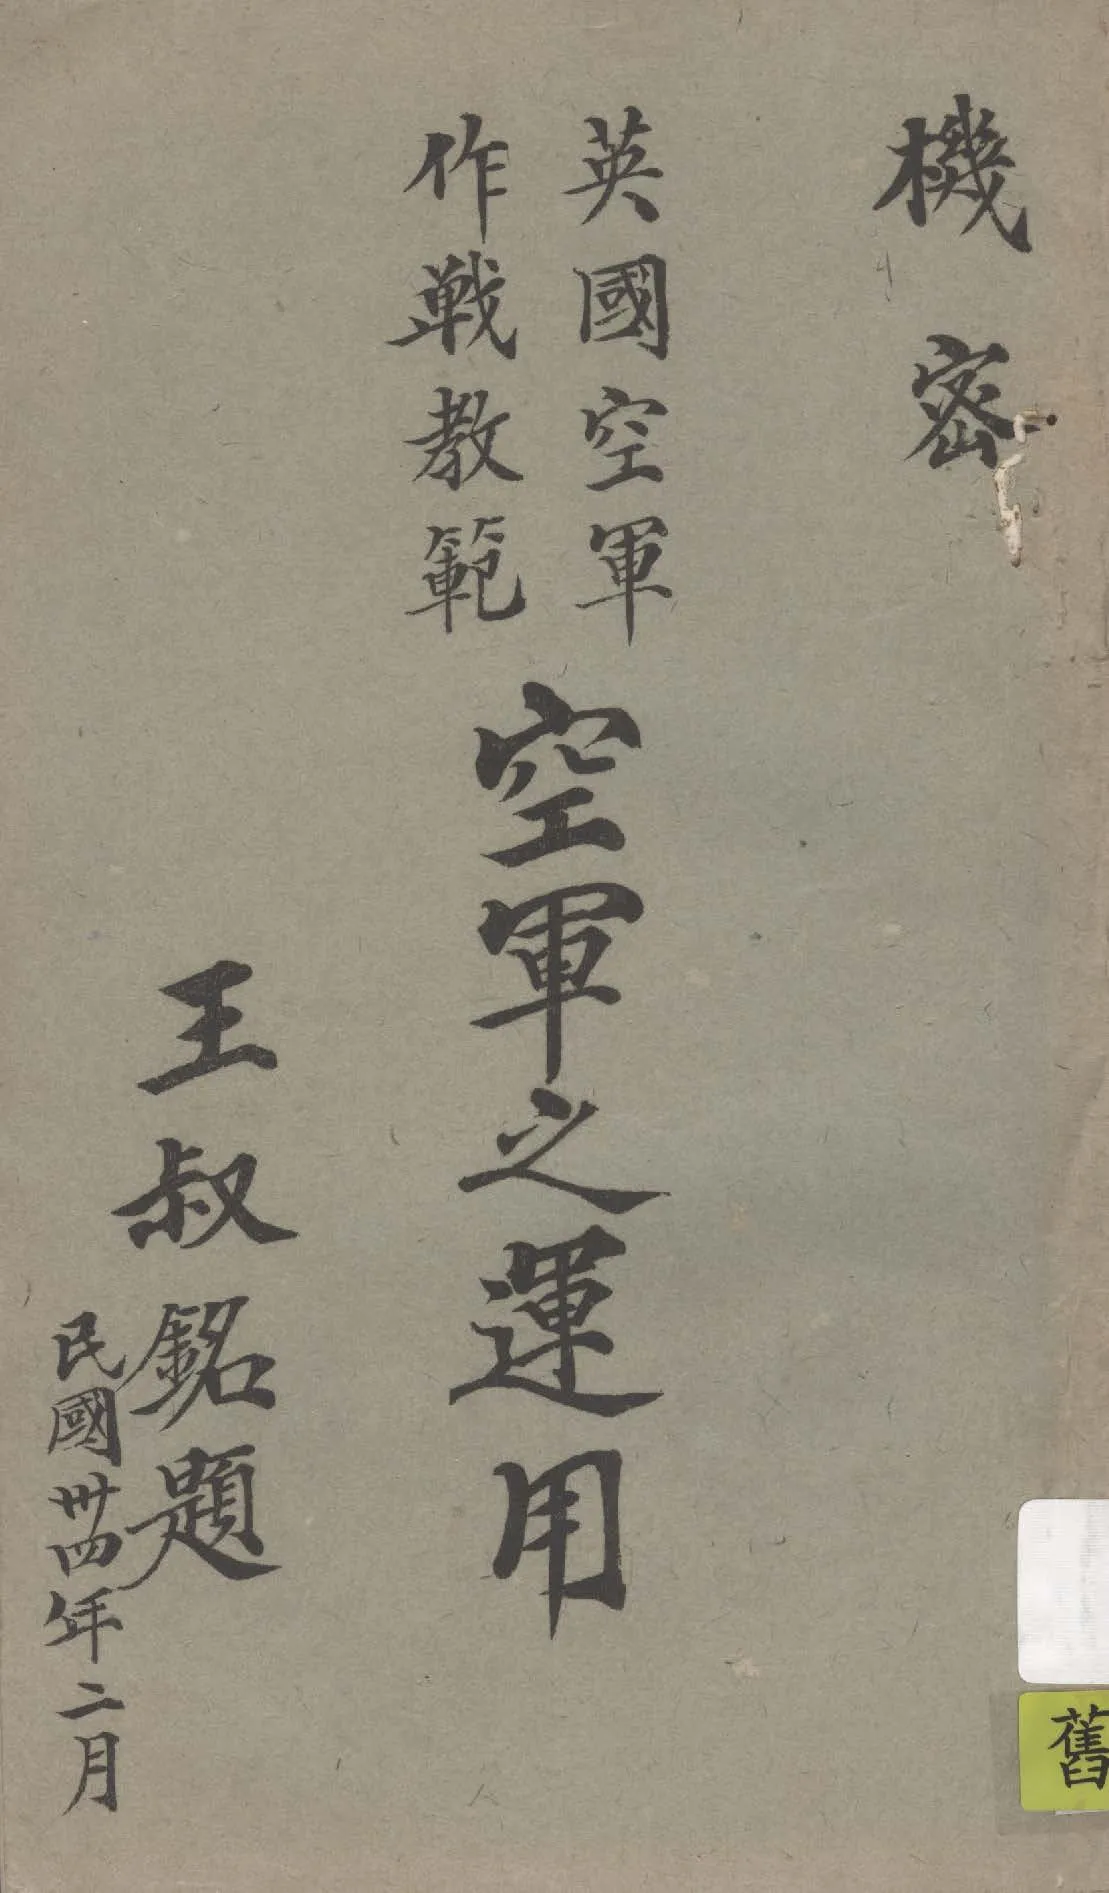 機密
英國空軍
作戰教範
空軍之運用
王叔銘題
民國卅四年二月
舊